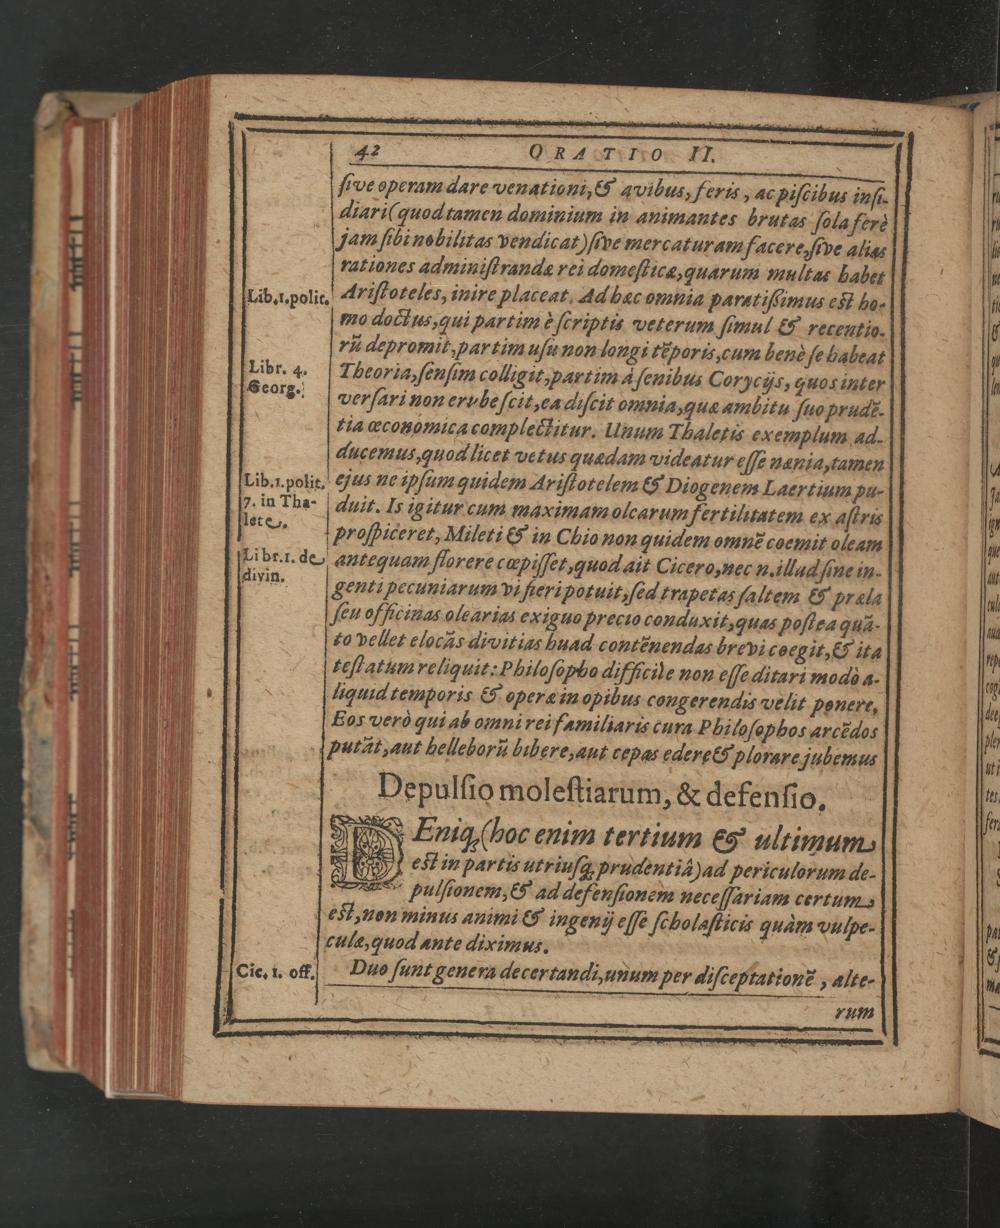 42 ORATIO II.
sive operam dare venationi, & avibus, feris, ac piscibus insi-
diari (quod tamen dominium in animantes brutas sola ferè
jam sibi nobilitas vendicat) sive mercaturam facere, sive alias
rationes administrandæ rei domesticæ, quarum multas habet
Lib.1.polit. Aristoteles, inire placeat. Ad hæc omnia paratißimus est ho-
mo doctus, qui partim è scriptis veterum simul & recentio-
rū depromit, partim usu non longi tēporis, cum benè se habeat
Libr. 4. Theoria, sensim colligit, partim à senibus Corycijs, quos inter
Georg. versari non erubescit, ea discit omnia, quæ ambitu suo prudē-
tia œconomica complectitur. Unum Thaletis exemplum ad-
ducemus, quod licet vetus quædam videatur esse nænia, tamen
Lib.1.polit. ejus ne ipsum quidem Aristotelem & Diogenem Laertium pu-
7. in Tha- duit. Is igitur cum maximam olearum fertilitatem ex astris
lete. prospiceret, Mileti & in Chio non quidem omnē coemit oleam
Libr.1. de antequam florere cœpisset, quod ait Cicero, nec n. illud sine in-
divin. genti pecuniarum vi fieri potuit, sed trapetas saltem & præla
seu officinas olearias exiguo precio conduxit, quas postea quā-
to vellet elocās divitias haud contēnendas brevi coegit, & ita
testatum reliquit: Philosopho difficile non esse ditari modò a-
liquid temporis & operæ in opibus congerendis velit ponere,
Eos verò qui ab omni rei familiaris cura Philosophos arcēdos
putāt, aut helleborū bibere, aut cepas edere & plorare jubemus
Depulsio molestiarum, & defensio.
DEniq; (hoc enim tertium & ultimum
est in partis utriusq; prudentiâ) ad periculorum de-
pulsionem, & ad defensionem necessariam certum
est, non minus animi & ingenij esse scholasticis quàm vulpe-
culæ, quod ante diximus.
Cic. 1. off. Duo sunt genera decertandi, unum per disceptationē, alte-
rum